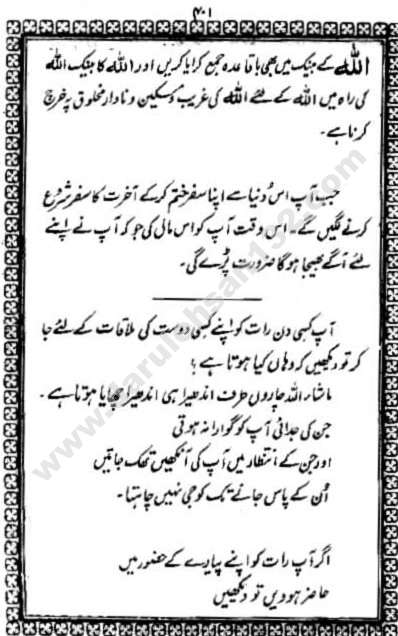 ۴۰۱
اللّٰه کے بینک میں بھی باقاعدہ جمع کرایا کریں اور اللّٰه کا بینک اللّٰه
کی راہ میں اللّٰه کے لئے اللّٰه کی غریب و مسکین و نادار مخلوق پہ خرچ
کرنا ہے۔
جب آپ اس دنیا سے اپنا سفر ختم کر کے آخرت کا سفر شروع
کرنے لگیں گے۔ اس وقت آپ کو اس مال کی جو کہ آپ نے اپنے
لئے آگے بھیجا ہوگا ضرورت پڑے گی۔
آپ کسی دن رات کو اپنے کسی دوست کی ملاقات کے لئے جا
کر تو دیکھیں کہ وہاں کیا ہوتا ہے!
ماشاء اللہ چاروں طرف اندھیرا ہی اندھیرا چھایا ہوتا ہے۔
جن کی جدائی آپ کو گوارا نہ ہوتی
اور جن کے انتظار میں آپ کی آنکھیں تھک جاتیں
اُن کے پاس جانے تک کو جی نہیں چاہتا۔
اگر آپ رات کو اپنے پیارے کے حضور میں
حاضر ہو دیں تو دیکھیں
www.darulehsan132.com